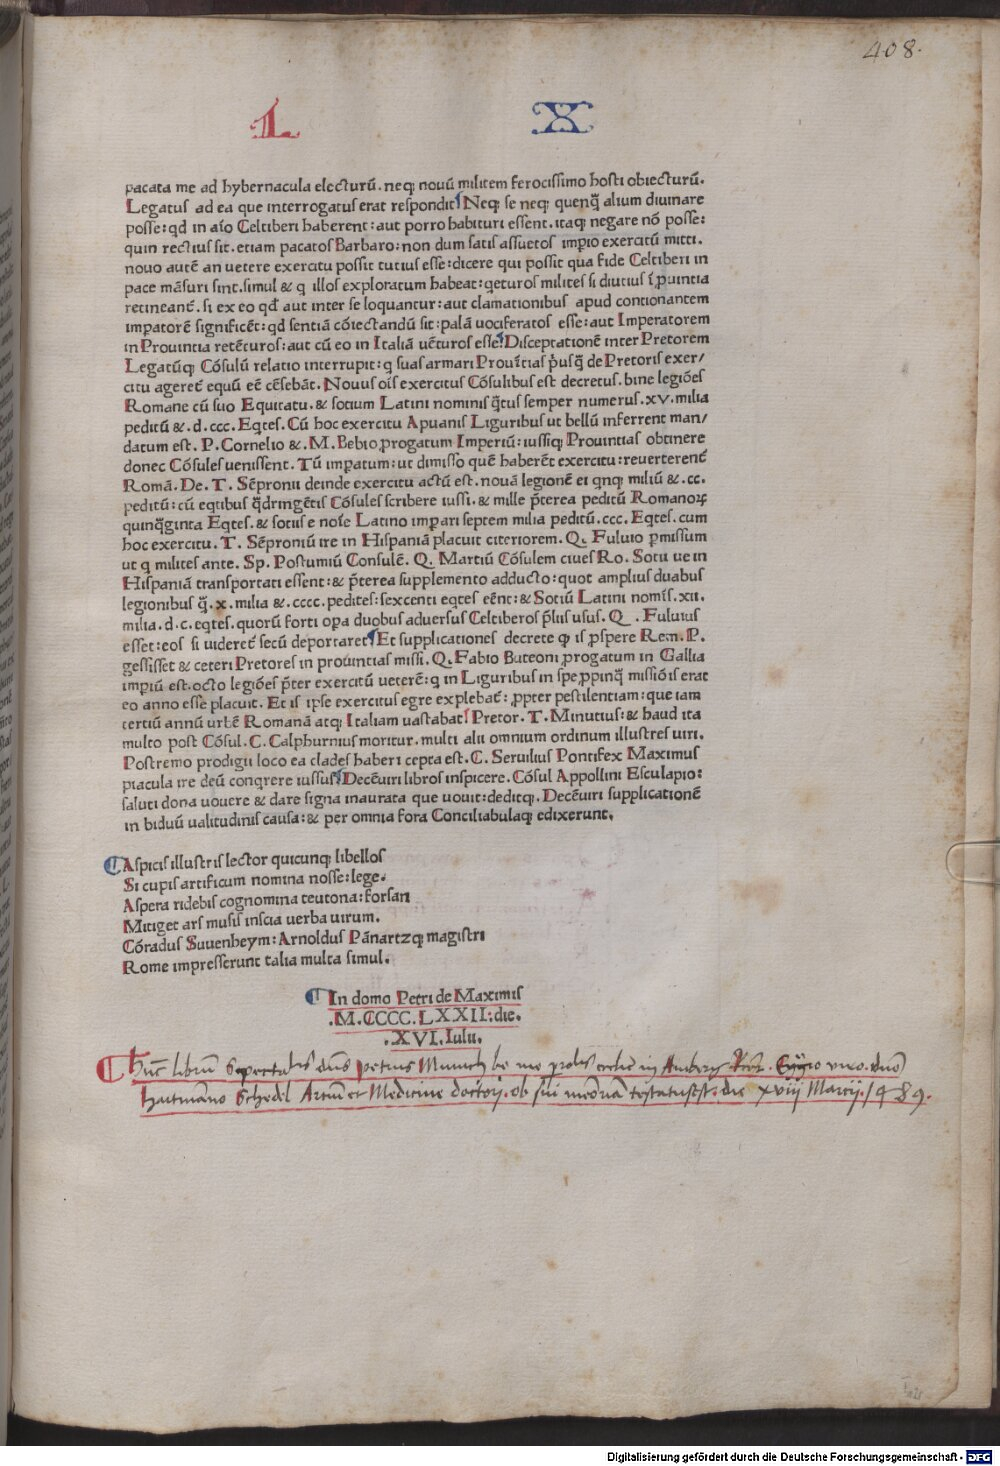 408.
L X
pacata me ad hybernacula electurū. neq; nouū militem ferocissimo hosti obiecturū.
Legatus ad ea que interrogatus erat respondit Neq; se neq; quenq̄ alium diuinare
posse: qd in aīo Celtiberi haberent: aut porro habituri essent. itaq; negare nō posse:
quin rectius sit. etiam pacatos Barbaro: non dum satis assuetos imp̄io exercitū mitti.
nouo autē an uetere exercitu possit tutius esse: dicere qui possit qua fide Celtiberi in
pace māsuri sint. simul & q illos exploratum habeat: q̄eturos milites si diutius ī prouintia
retineant̄. si ex eo qd aut inter se loquantur: aut clamationibus apud contionantem
impatorē significēt: qd sentiā cōiectandū sit: palā uociferatos esse: aut Imperatorem
in Prouintia retēcuros: aut cū eo in Italiā uēturos esse. Disceptationē inter Pretorem
Legatūq; Cōsulū relatio interrupit: q suas armari Prouītias p̄usq̄ de Pretoris exer/
citu ageret̄ equū eē cēsebāt. Nouus oīs exercitus Cōsulibus est decretus. bine legiōes
Romane cū suo Equitatu. & sotium Latini nominis q̄tus semper numerus. xv. milia
peditū & .d.ccc. Eqtes. Cū hoc exercitu Apuanis Liguribus ut bellū inferrent man/
datum est. P. Cornelio & .M. Bebio progatum Imperiū: iussiq; Prouintias obtinere
donec Cōsules uenissent. Tū impatum: ut dimisso quē haberēt exercitu: reuerterent̄
Romā. De. T. Sēpronii deinde exercitu actū est. nouā legionē ei qnq; miliū & .cc.
peditū: cū eqtibus q̄dringētis Cōsules scribere iussi. & mille p̄terea peditū Romanoꝝ
quinq̄ginta Eqtes. & sotiis e noīe Latino impari septem milia peditū. ccc. Eqtes. cum
hoc exercitu. T. Sēproniū ire in Hispaniā placuit citeriorem. Q. Fuluio pmissum
ut q milites ante. Sp. Postumiū Consulē. Q. Martiū Cōsulem ciues Ro. Sotii ue in
Hispaniā transportati essent: & p̄terea supplemento adducto: quot amplius duabus
legionibus q̄. x. milia & .cccc. pedites: sexcenti eqtes eēnt: & Sotiū Latini nomīs. xii.
milia. d.c. eqtes. quorū forti opa duobus aduersus Celtiberos p̄lius usus. Q . Fuluius
esset: eos si uideret̄ secū deportaret Et supplicationes decrete qp is pspere Rem. P.
gessisset & ceteri Pretores in prouintias missi. Q. Fabio Buteoni progatum in Gallia
impiū est. octo legiōes p̄ter exercitū ueterē: q in Liguribus in spe ppinq̄ missiōis erat
eo anno esse placuit. Et is ipse exercitus egre explebat̄: ppter pestilentiam: que iam
tertiū annū urbē Romanā atq; Italiam uastabat Pretor. T. Minutius: & haud ita
multo post Cōsul. C. Calphurnius moritur. multi alii omnium ordinum illustres uiri.
Postremo prodigii loco ea clades haberi cepta est. C. Seruilius Pontifex Maximus
piacula ire deū conqrere iussus Decēuiri libros inspicere. Cōsul Appollini Esculapio:
saluti dona uouere & dare signa inaurata que uouit: deditq;. Decēuiri supplicationē
in biduū ualitudinis causa: & per omnia fora Conciliabulaq; edixerunt.
Aspicis illustris lector quicunq; libellos
Si cupis artificum nomina nosse: lege.
Aspera ridebis cognomina teutona: forsan
Mitiget ars musis inscia uerba uirum.
Cōradus Suuenheym: Arnoldus Pānartzq; magistri
Rome impresserunt talia multa simul.
In domo Petri de Maximis
.M.CCCC.LXXII: die.
.XVI. Iulii.
Hūc librū Spectabīs dn̄s Petrus Munch be me in Amberg Egregio uiro. duō
hartmāno Schedel Artiū et Medicine doctori. ob sui memoriā testatus est. die xviii Marcij. 1489.
Digitalisierung gefördert durch die Deutsche Forschungsgemeinschaft - DFG